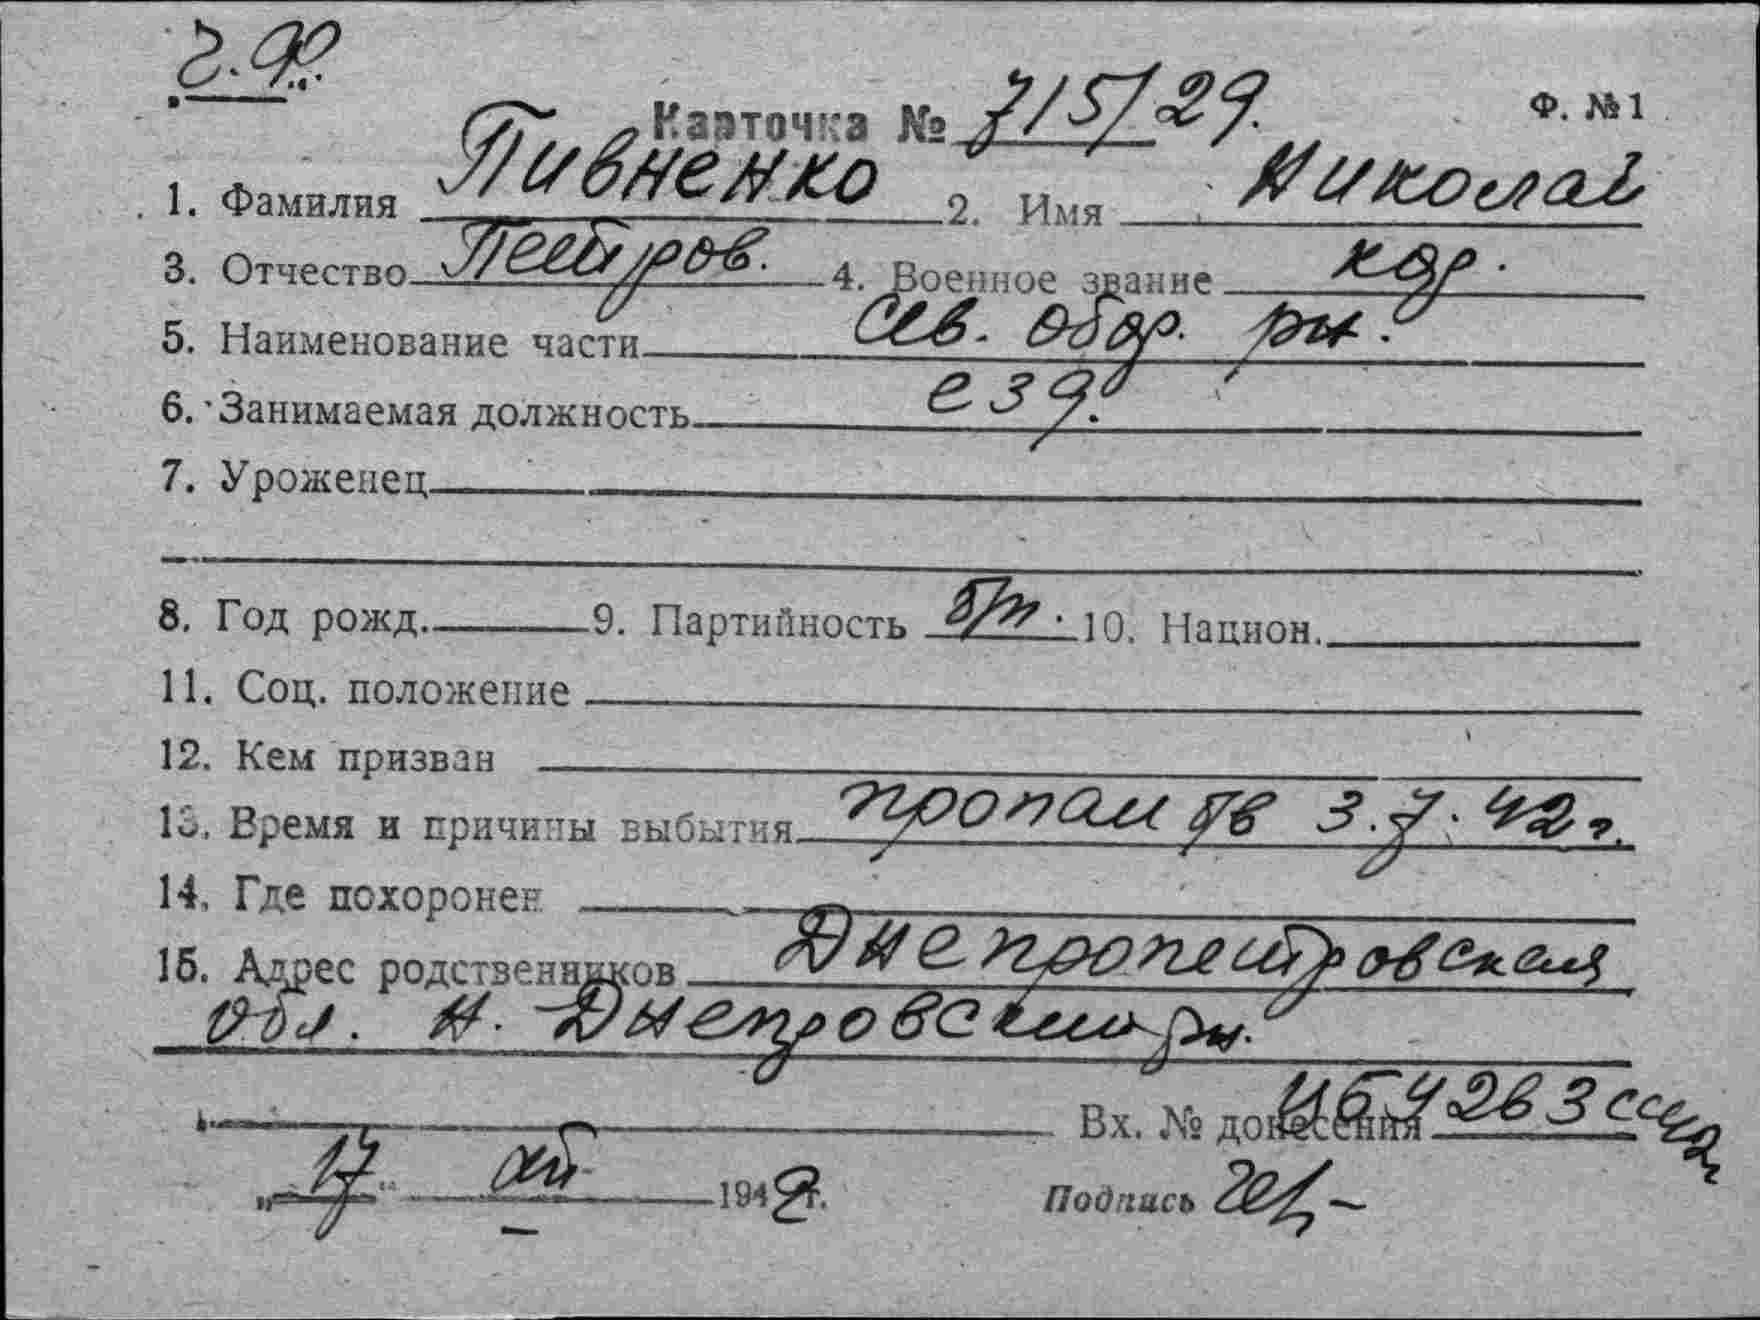 Карточка № 715/29.
Ф. №1
1. Фамилия Пивненко 2. Имя Николай
3. Отчество Петров. 4. Военное звание кдр.
5. Наименование части Сев. обор. рн.
6. Занимаемая должность езд.
7. Уроженец
8. Год рожд. 9. Партийность б/п. 10. Национ.
11. Соц. положение
12. Кем призван
13. Время и причины выбытия пропал 3.7.42 г.
14. Где похоронен
15. Адрес родственников Днепропетровская
обл. Н. Днепровский рн.
Вх. № донесения
„17“ 1942 г.
Подпись